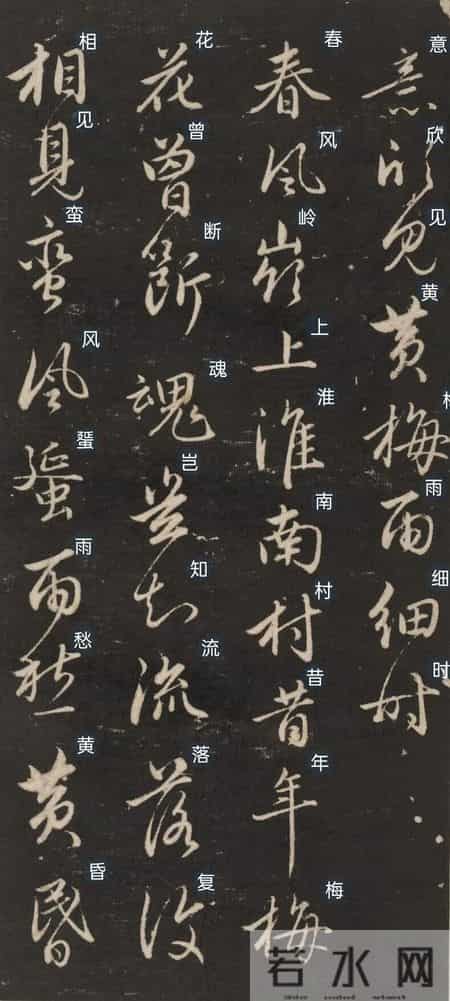 意欣見黃梅雨細時
意欣见黄雨细时
春風嶺上淮南村昔年梅
春风岭上淮南村昔年梅
花曾斷魂豈知流落復
花曾断魂岂知流落复
相見蠻風蜑雨愁黃昏
相见蛮风蜑雨愁黄昏
若水网